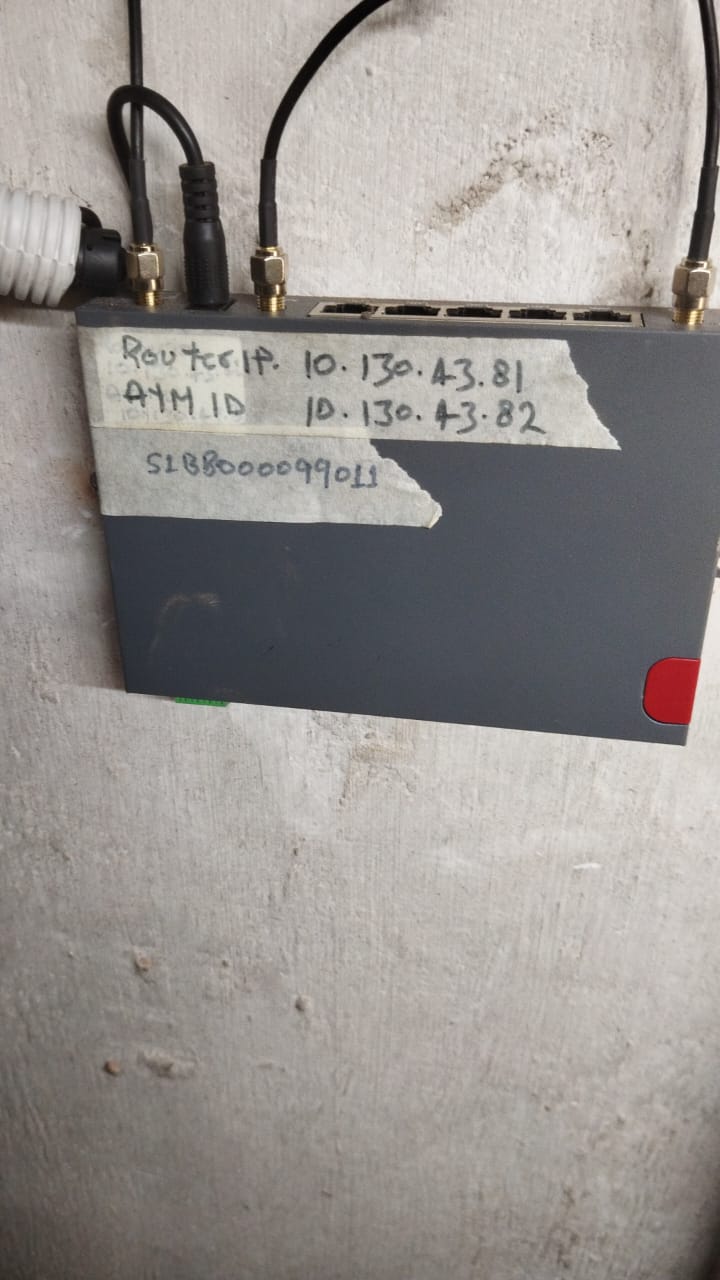 Router IP. 10.130.43.81
ATM ID 10.130.43.82
S1BB000099011